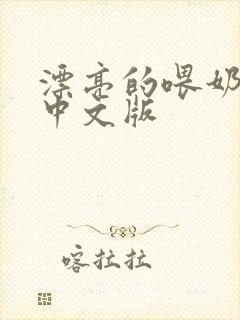 漂亮的喂奶
中文版
喀拉拉